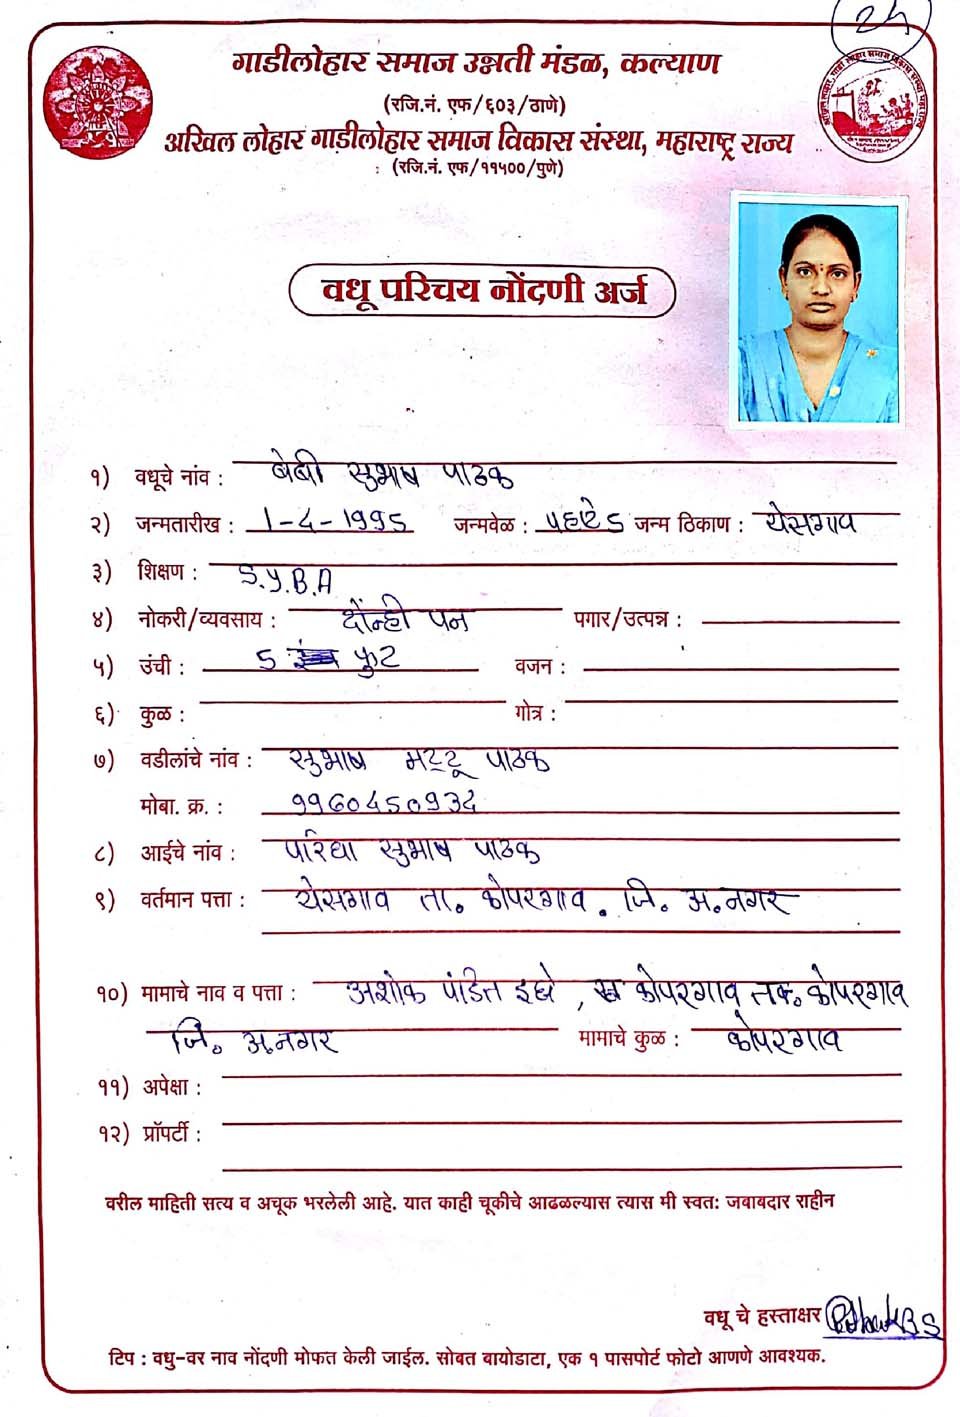 24
गाडीलोहार समाज उन्नती मंडळ, कल्याण
(रजि.नं. एफ/६०३/ठाणे)
अखिल लोहार गाडीलोहार समाज विकास संस्था, महाराष्ट्र राज्य
(रजि.नं. एफ/११५००/पुणे)
वधू परिचय नोंदणी अर्ज
१) वधूचे नांव : बेबी सुभाष पाठक
२) जन्मतारीख : 1-4-1995 जन्मवेळ : पहाटे 5 जन्म ठिकाण : येसगाव
३) शिक्षण : S.Y.B.A
४) नोकरी/व्यवसाय : दोन्ही पन पगार/उत्पन्न :
५) उंची : 5 फुट वजन :
६) कुळ : गोत्र :
७) वडीलांचे नांव : सुभाष पाठक
मोबा. क्र. : 9960450934
८) आईचे नांव : सुभाष पाठक
९) वर्तमान पत्ता : येसगाव ता. कोपरगाव. जि. अ.नगर
१०) मामाचे नाव व पत्ता : अशोक पंडित इघे, कोपरगाव कोपरगाव
जि. अ.नगर मामाचे कुळ : कोपरगाव
११) अपेक्षा :
१२) प्रॉपर्टी :
वरील माहिती सत्य व अचूक भरलेली आहे. यात काही चूकीचे आढळल्यास त्यास मी स्वत: जबाबदार राहीन
वधू चे हस्ताक्षर
टिप : वधु-वर नाव नोंदणी मोफत केली जाईल. सोबत बायोडाटा, एक १ पासपोर्ट फोटो आणणे आवश्यक.